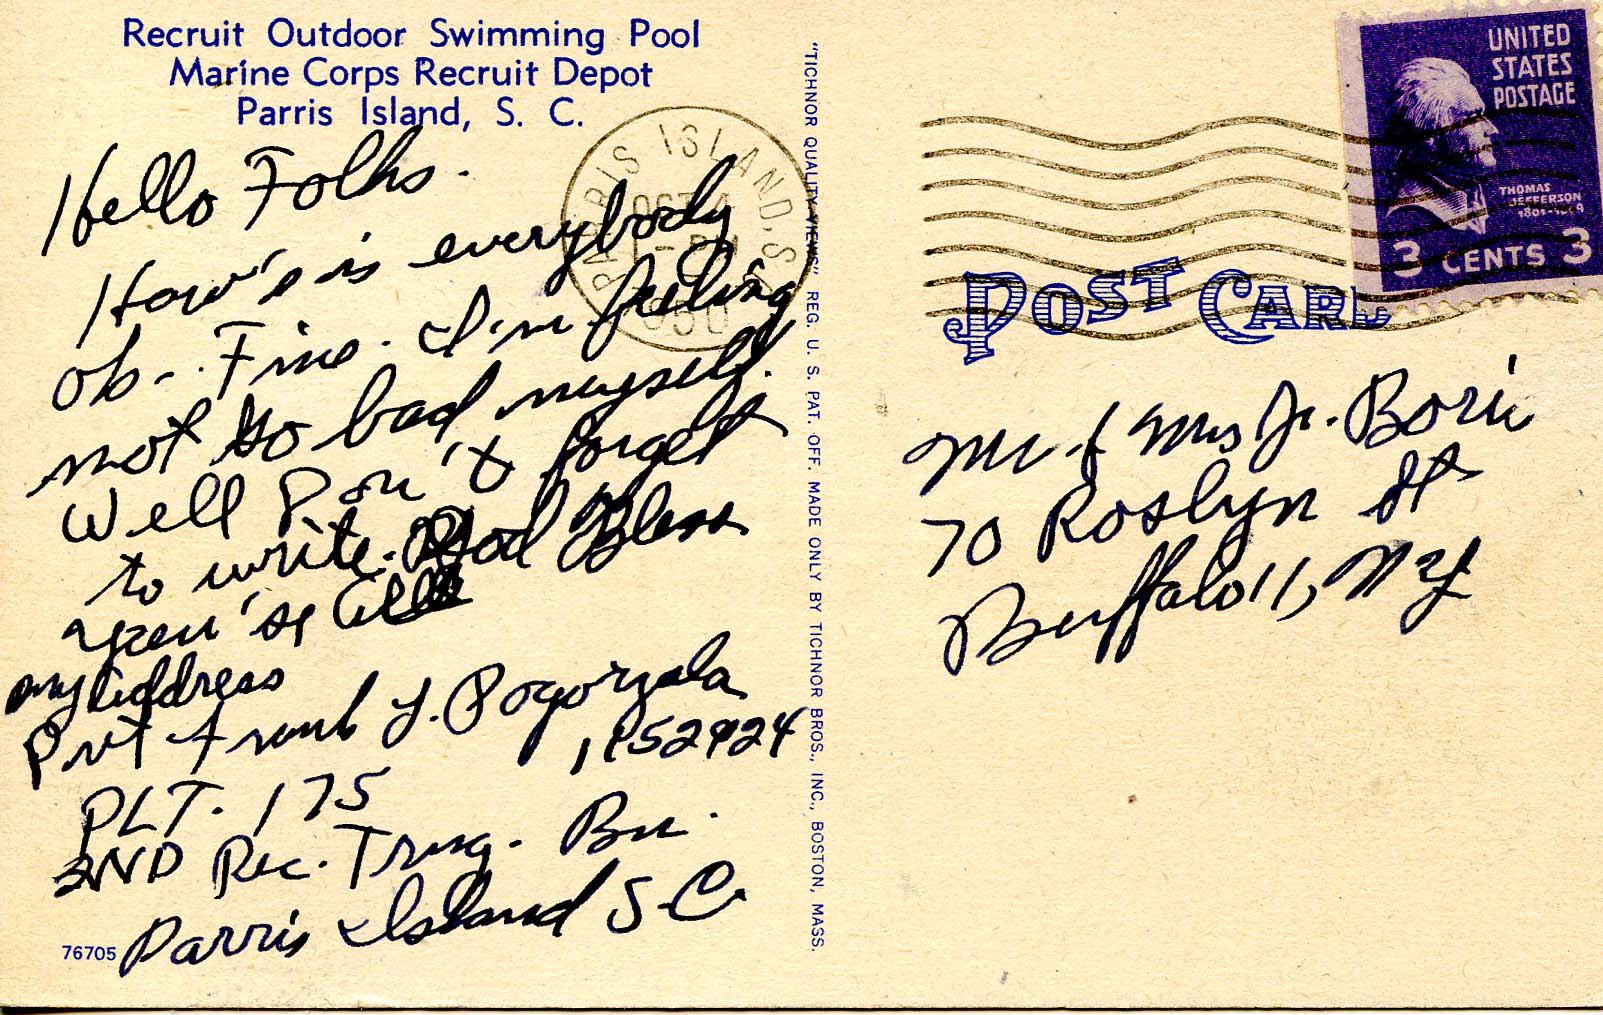 Recruit Outdoor Swimming Pool
Marine Corps Recruit Depot
Parris Island, S. C.
Hello Folks.
How's is everybody
ok-. Fine. I'm feeling
not so bad myself.
Well Don't forget
to write. God Bless
you's all
my address
Pvt Frank J. Pogorzala
1152924
PLT. 175
2ND Rec. Trng. Bn.
Parris Island S.C
76705
PARRIS ISLAND, S.
OCT
"TICHNOR QUALITY VIEWS" REG. U. S. PAT. OFF. MADE ONLY BY TICHNOR BROS., INC., BOSTON, MASS.
UNITED
STATES
POSTAGE
THOMAS
JEFFERSON
3 CENTS 3
POST CARD
Mr & Mrs Jr. Bori
70 Roslyn St
Buffalo 11, NY